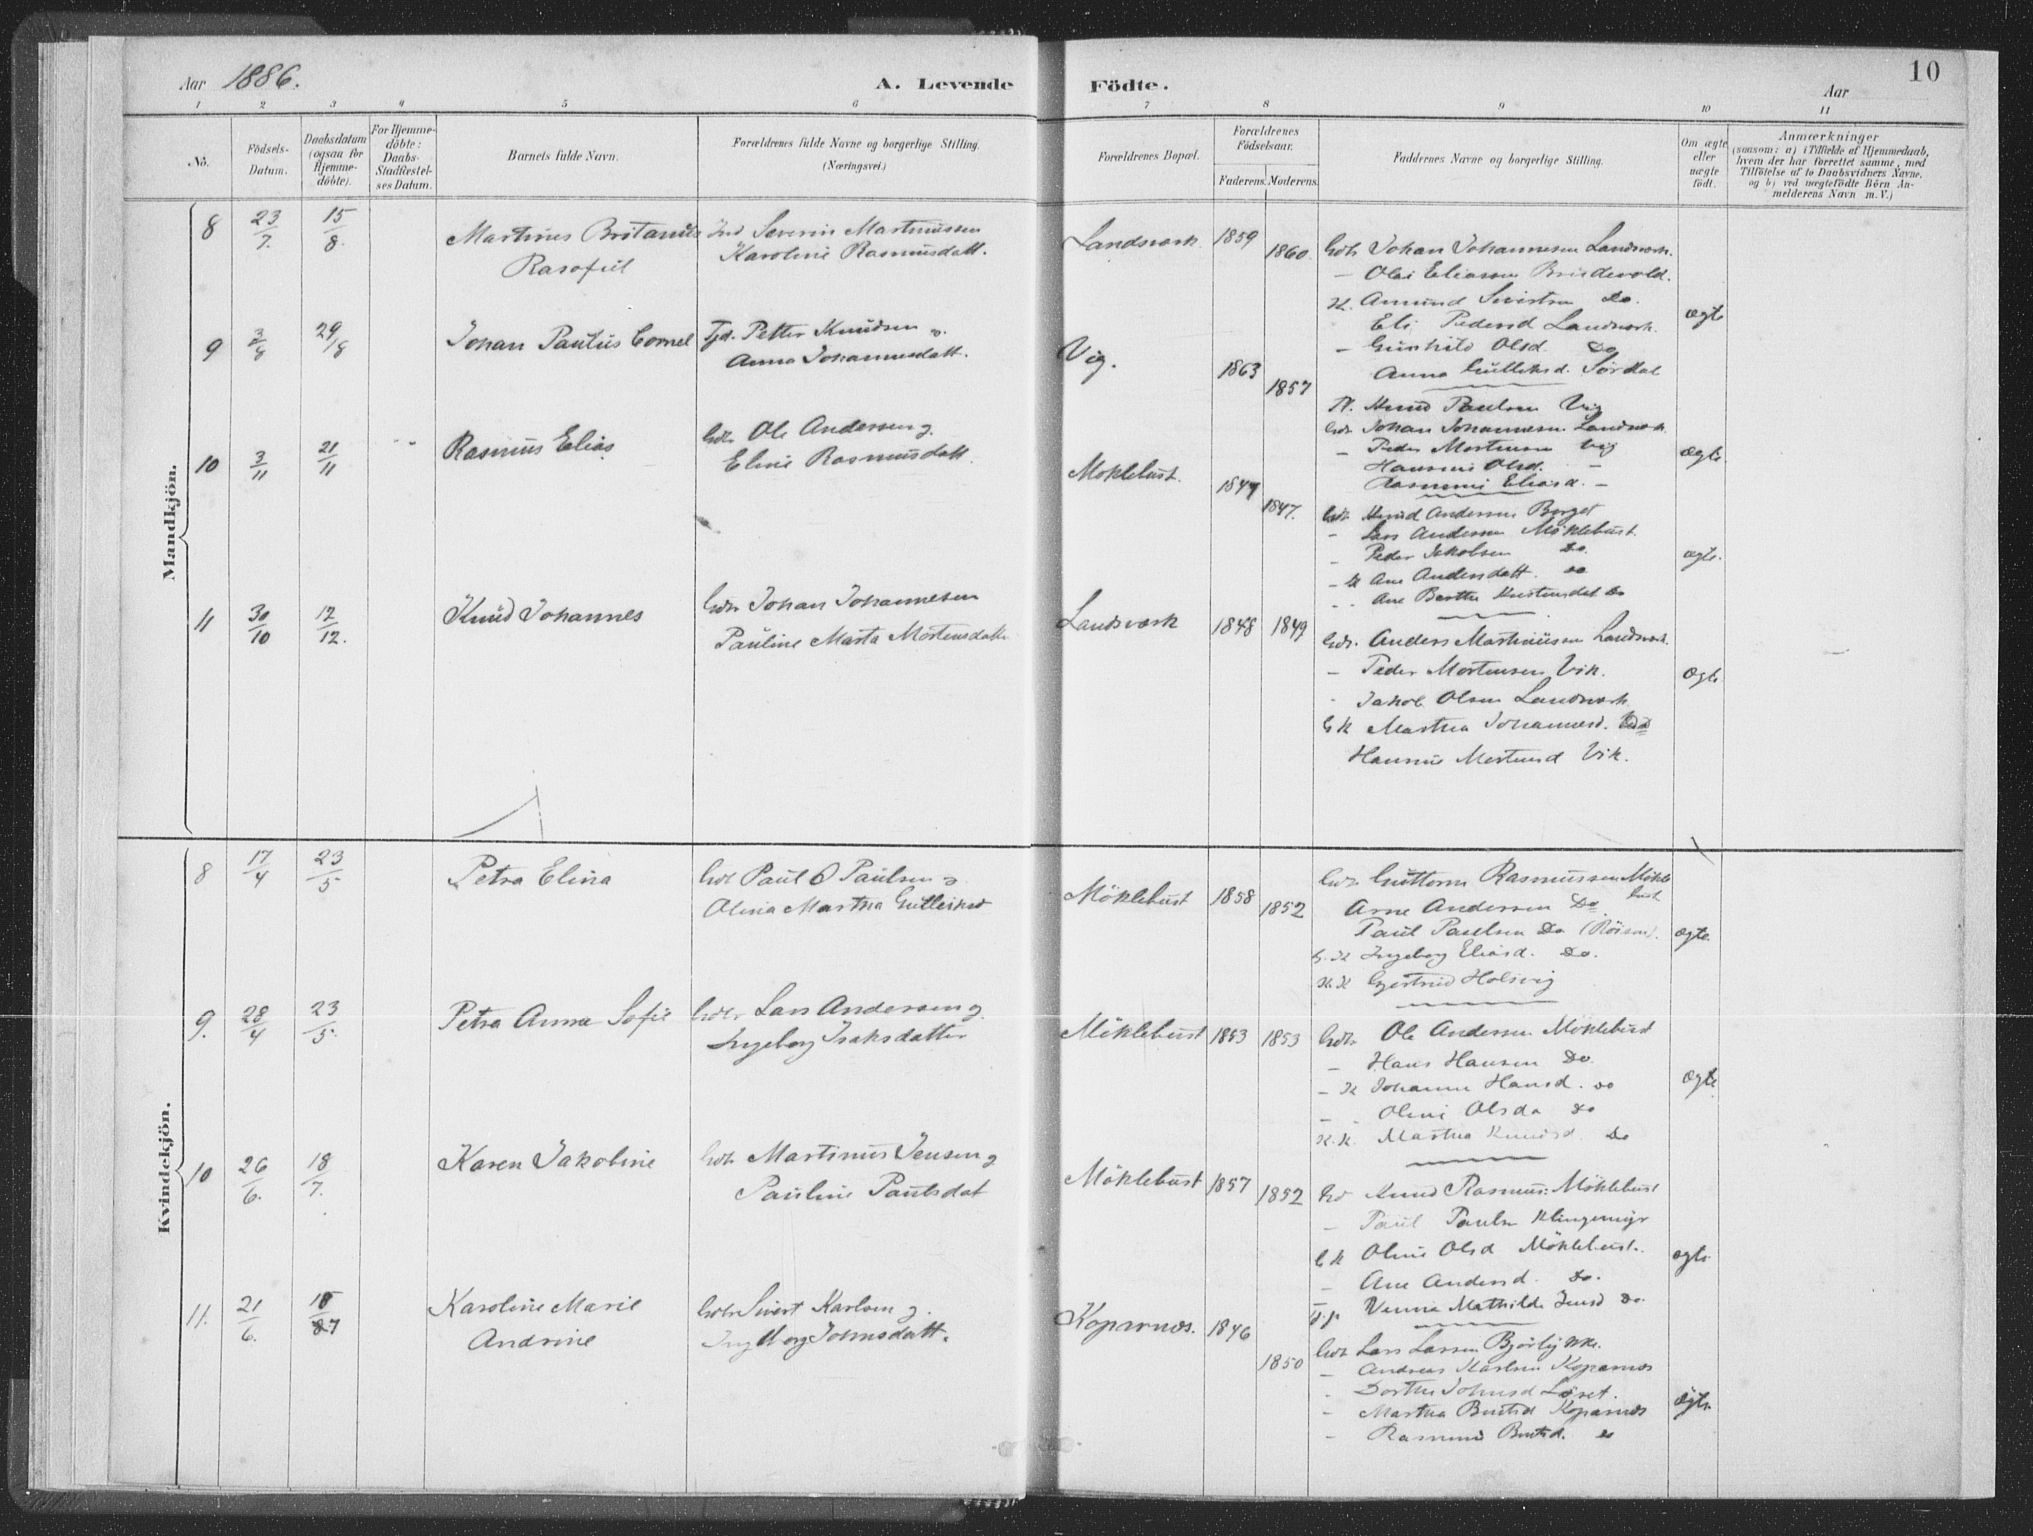 Aar 1886.
A. Levende
Födte.
10
Aar
1 2 3 4 5 6 7 8 9 10 11
Nö.
Födsels-
Datum.
Daabsdatum
(ogsaa for
Hjemme-
döbte).
For Hjemme-
döbte:
Daabs-
Stadfæstel-
ses Datum.
Barnets fulde Navn.
Forældrenes fulde Navne og borgerlige Stilling.
(Næringsvei.)
Forældrenes Bopæl.
Forældrenes
Födselsaar.
Faderens. Moderens.
Faddernes Navne og borgerlige Stilling.
Om ægte
eller
uægte
födt.
Anmærkninger
(saasom: a) i Tilfælde af Hjemmedaab,
hvem der har forrettet samme, med
Tilföielse af to Daabsvidners Navne,
og b) ved uægtefödte Börn An-
melderens Navn m.V.)
Mandkjön.
8 23/7. 15/8.
Martines
Severin Martinussen
Karoline Rasmusdatt.
Landsværk 1859 1860.
Gdr. Johan Johannesen Landsværk.
- Olai Eliassen
Amund Sivertsen Do.
Eli Pedersd Landsværk.
- Gunhild Olsd. Do
Anna Gulliksd. Sördal
ægte
9 3/8 29/8
Johan Paulus Cornel
Petter Knudsen
Anna Johannesdatt.
Vig. 1863 1857
Knud Paulsen Vig
Gdr Johan Johannesen Landsværk
- Peder Mortensen Vig
Hansine Olsd. -
Rasmine Eliasd. -
ægte.
10 3/11 21/11
Rasmus Elias
Gdr. Ole Andersen g.
Eline Rasmusdatt.
Moklebust. 1847 1847.
Gdr Knud Andersen Berget
- Lars Andersen Möklebust.
- Peder Jakobsen Do.
- K Ane Andersdatt. do
Ane Berthe Do
ægte.
11 30/10 12/12.
Knud Johannes
Gdr Johan Johannesen
Pauline Marta Mortensdatt
Landsværk 1848 1849
Gdr. Anders Martinussen Landsværk.
- Peder Mortensen Vik.
- Jakob Olsen Landsværk
G K Martha Johannesd.
Hansine Mortensd Vik.
Ægte
Kvindekjön.
8 17/4 23/5
Petra Elina
Gdr Paul O Paulsen g.
Olina Martha Gulleiksd
Möklebust 1858 1852
Gdr. Guttorm Rasmussen Mökle
bust
Arne Andersen Do
Paul Paulsen Do
G. K Ingeborg Eliasd. Do.
K. K Gjertrud Holsvig
ægte.
9. 28/4 23/5.
Petra Anna Sofie
Gdr Lars Andersen g.
Ingeborg Isaksdatter
Möklebust 1853 1853
Gdr. Ole Andersen Möklebust
- Hans Hansen Do.
- K Johanne Hansd. do
- Oline Olsda do
K. K. Martha Knudsd. Do
Ægte
10 26/6. 18/7.
Karen Jakobine
Gdr Martinus Jensen g
Pauline Paulsdat
Möklebust 1857 1852
Gdr Knud Rasmus: Möklebust
- Paul Paulsen Klingenmyr
G K Oline Olsd Möklebust.
- Ane Andersd. Do.
Mathilde Jensd Do.
ægte
11. 21/6. 18/7
Karoline Marie
Andrine
Gdr Sivert Karlsen g.
Ingeborg Johnsdatt.
Koparnæs. 1846 1850
Gdr Lars Larsen
- Andreas Karlsen Koparnæs
- Dorthe Johnsd Löset.
- Martha Koparnæs
- Rasmine do
ægte